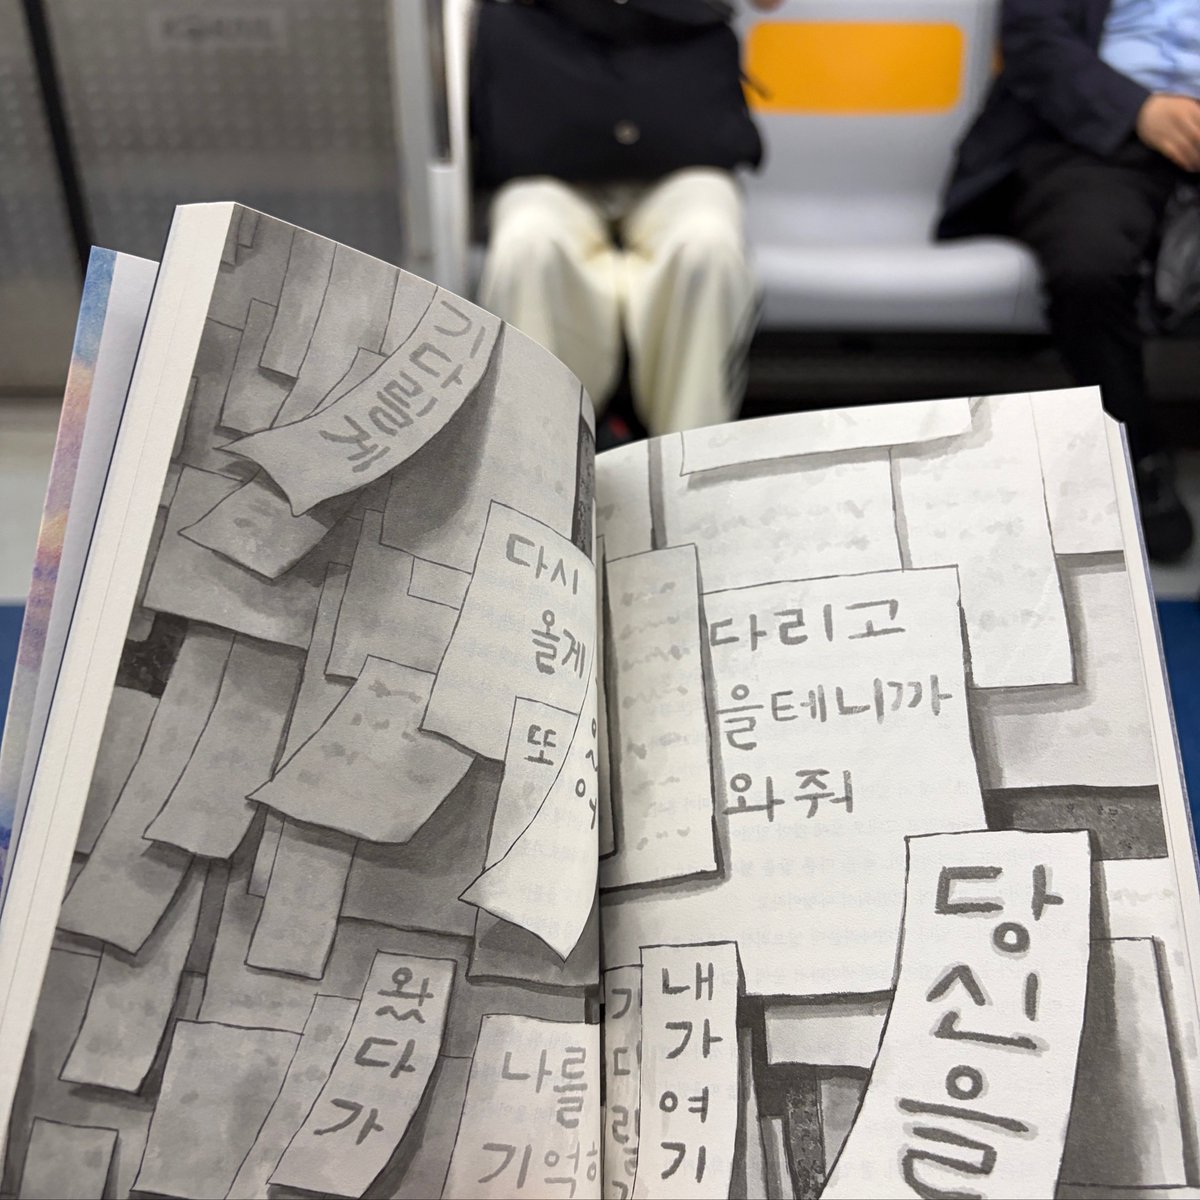 기다릴게
다시
올게
또
왔다가
나를
기억하
다리고
을테니까
와줘
내가여기
당신을